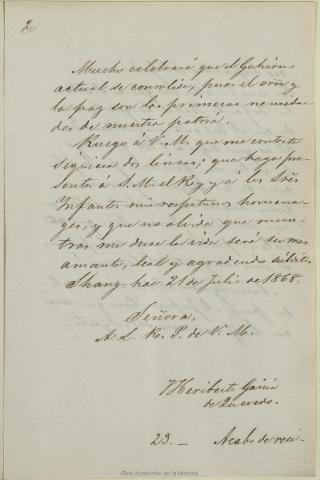 2
Mucho celebraré que el Gobierno
actual se consolide, pues el orn y
la paz son las primeras necesida-
des de nuestra patria.
Ruego á V. M. que me conteste
siquiera dos lineas; que haga pre-
sentes á S. M. el Rey y á los Sres
Infantes mis respetuosos homena-
ges, y que no olvide que mien-
tras me dure la vida será su mas
amante, leal y agradecido súbdito.
Shang-hae 21 de Julio de 1868.
Señora,
A. L. R. P. de V. M.
J. Heriberto García
de Quevedo.
23.— Acabo de reci-
Real Academia de la Historia